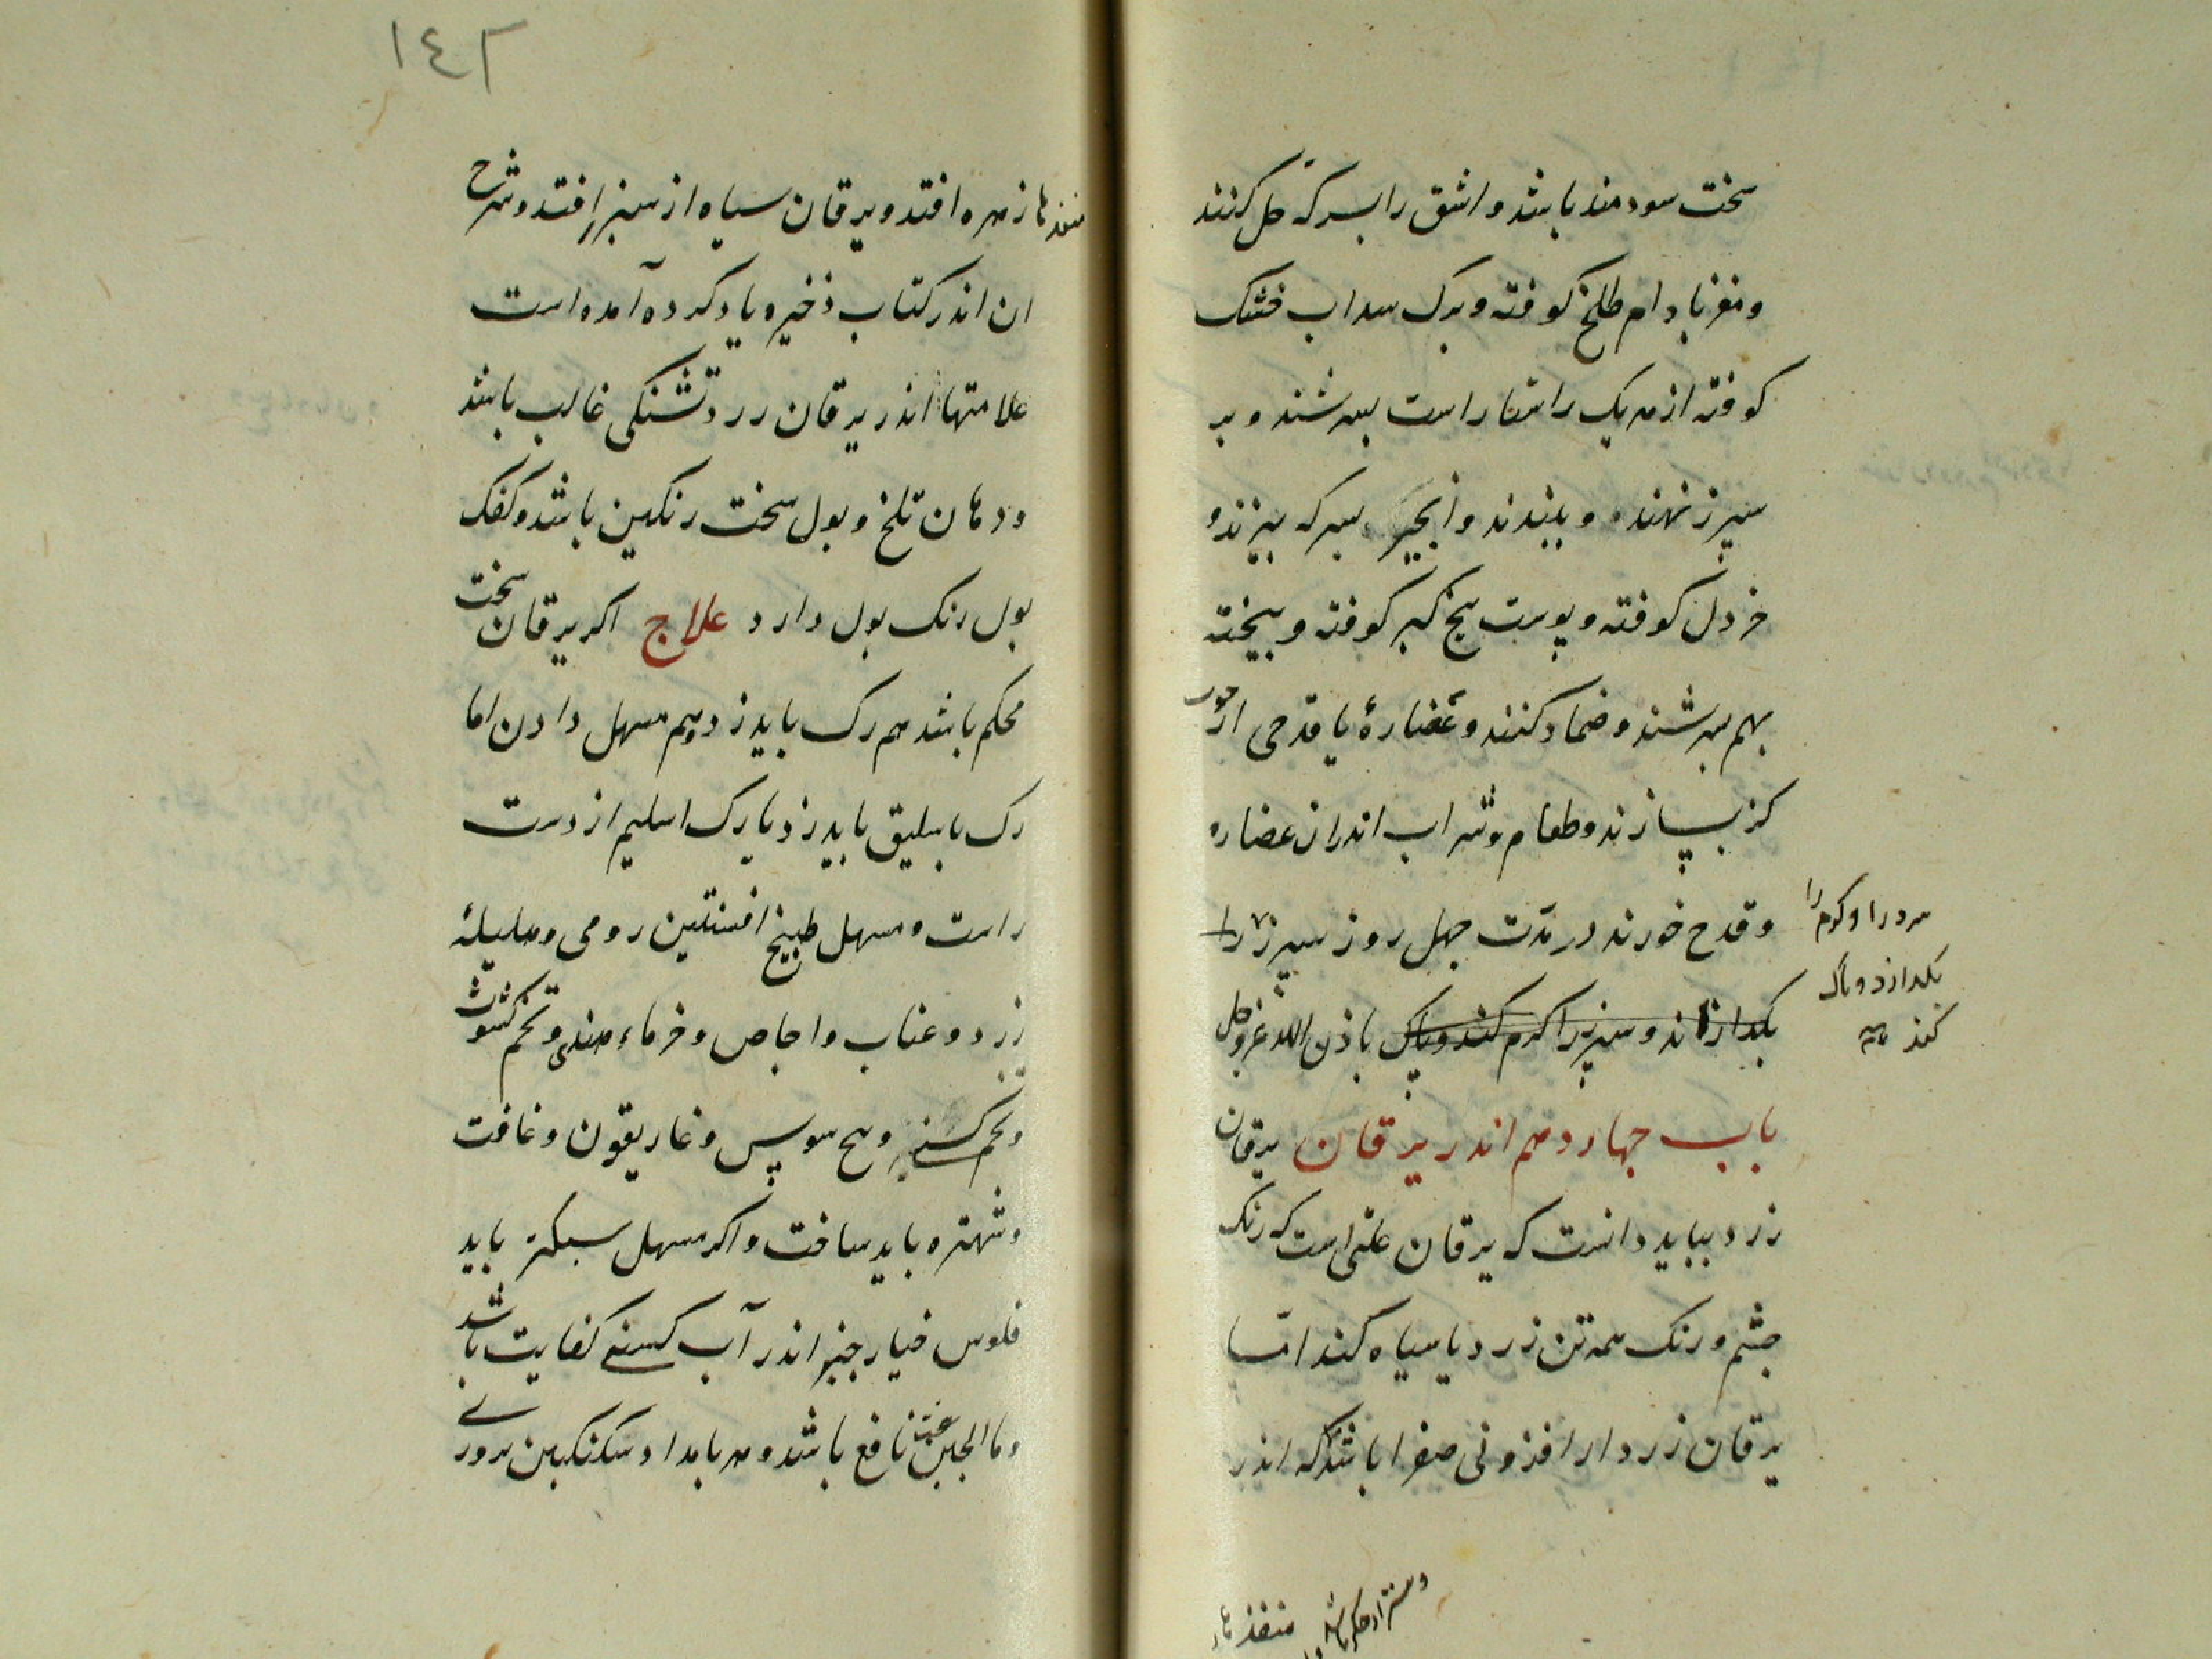 سخت سودمند باشد و اشق را بسرکه حل کنند
و مغز بادام طلخ کوفته و برک سداب خشک
کوفته از هر یک راستا راست بسرشند و بر
سپرز نهند و ببندند و انجیر بسرکه بپزند و
خردل کوفته و پوست بیخ کبر کوفته و بیخته
بهم بسرشند و ضماد کنند و غضارهٔ یا قدحی از چوب
کز بسازند و طعام و شراب اندران غضاره
و قدح خورند در مدّت چهل روز سپرز را
بکدازاند و سپرز را کرم کند و پاک باذن الله عزوجل
بکدازد و پاک
کند
باب چهاردهم اندر یرقان یرقان
زرد بباید دانست که یرقان علتی است که رنک
چشم و رنک همه تن زرد یا سیاه کند امّا
یرقان زرد از افزونی صفرا باشد که اندر
منفذها
١٤٦
منفذها زهره افتد و یرقان سیاه از سپرز افتد و شرح
ان اندر کتاب ذخیره یاد کرده آمده است
علامتها اندر یرقان زرد تشنکی غالب باشد
و دهان تلخ و بول سخت رنکین باشد و کفک
بول رنک بول دارد علاج اکر یرقان سخت
محکم باشد هم رک باید زد و هم مسهل دادن اما
رک باسلیق باید زد یا رک اسلیم از دست
راست و مسهل طبیخ افسنتین رومی و هلیلهٔ
زرد و عناب و اجاص و خرماء هندی و تخم کشوث
و تخم کسنی و بیخ سوس و غاریقون و غافت
و شهتره باید ساخت و اکر مسهل سبکتر باید
فلوس خیارچنبر اندر آب کسنی کفایت باشد
و ماالجبن نافع باشد و هر بامداد سکنکبین بزوری